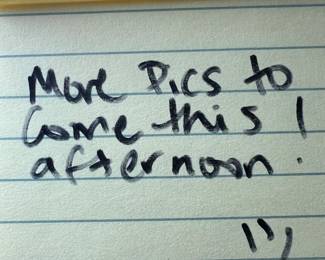 More Pics to
Come this !
afternoon.